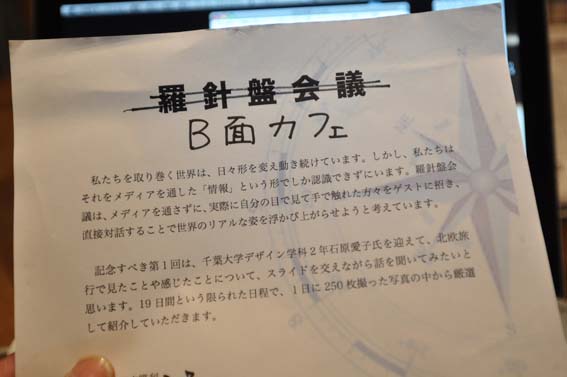 羅針盤会議
B面カフェ
私たちを取り巻く世界は、日々形を変え動き続けています。しかし、私たちは
それをメディアを通した「情報」という形でしか認識できずにいます。羅針盤会
議は、メディアを通さずに、実際に自分の目で見て手で触れた方々をゲストに招き、
直接対話することで世界のリアルな姿を浮かび上がらせようと考えています。
記念すべき第1回は、千葉大学デザイン学科2年石原愛子氏を迎えて、北欧旅
行で見たことや感じたことについて、スライドを交えながら話を聞いてみたいと
思います。19日間という限られた日程で、1日に250枚撮った写真の中から厳選
して紹介していただきます。